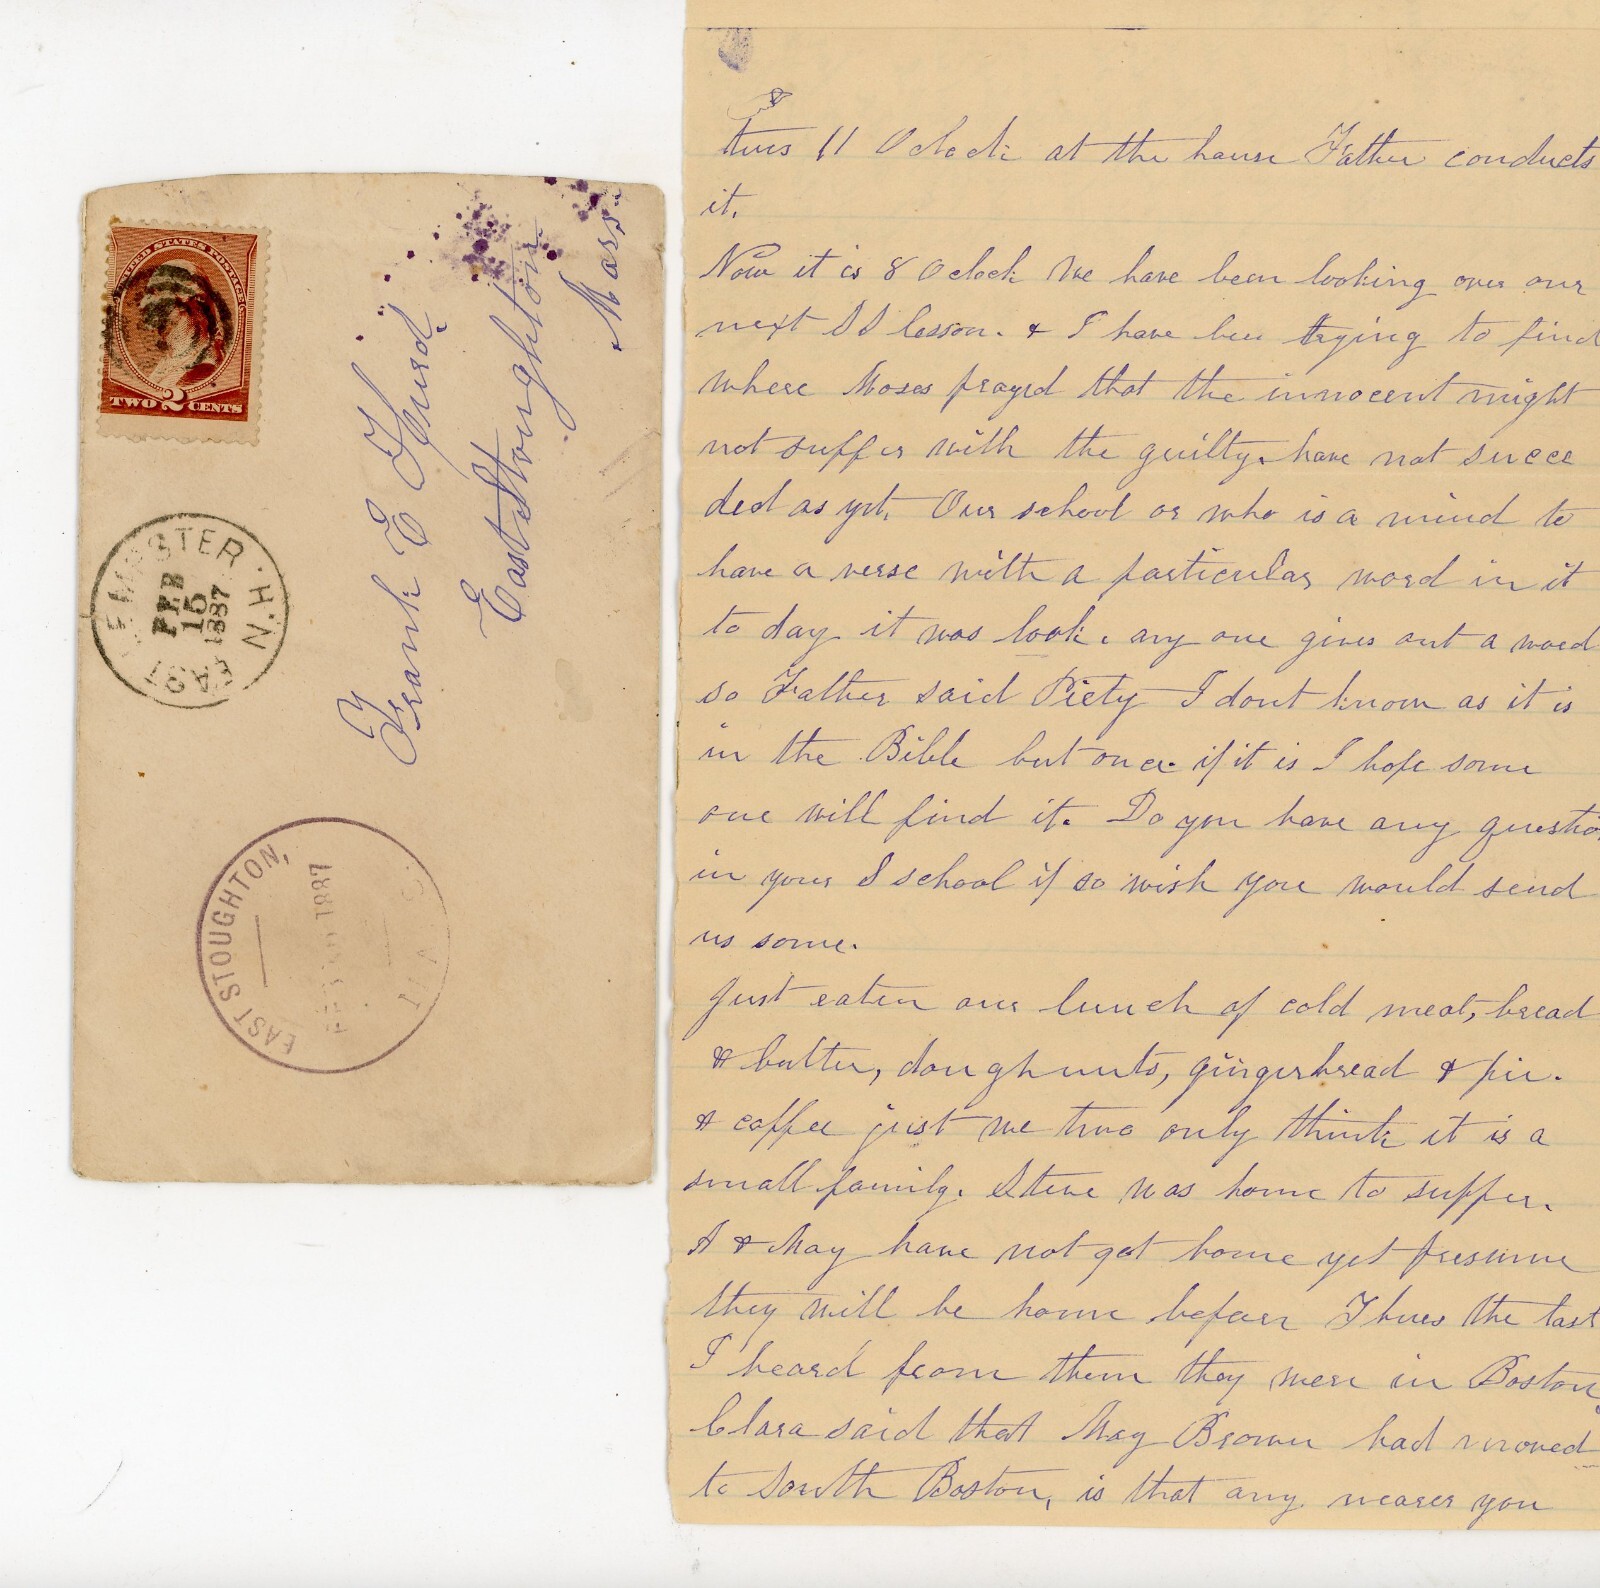 UNITED STATES POSTAGE
TWO 2 CENTS
EAST LEMPSTER · N.H.
FEB
15
1887
Frank E Hurd.
East Stoughton.
Mass.
EAST STOUGHTON,
1887
tues 11 Oclock at the house Father conducts
it.
Now it is 8 Oclock We have been looking over our
next S S lesson. & I have been trying to find
where Moses prayed that the innocent might
not suffer with the guilty. have not succe
ded as yet. Our school or who is a mind to
have a verse with a particular word in it
to day it was look. any one gives out a word
so Father said Piety I dont know as it is
in the Bible but once. if it is I hope some
one will find it. Do you have any questio
in your S school if so wish you would send
us some.
Just eaten our lunch of cold meat, bread
& butter, doughnuts, gingerbread & pie.
& coffee just we two only think it is a
small family. Steve was home to supper.
A & May have not get home yet presume
they will be home before Thurs the last
I heard from them they were in Boston,
Clara said that May Brown had moved
to South Boston, is that any nearer you